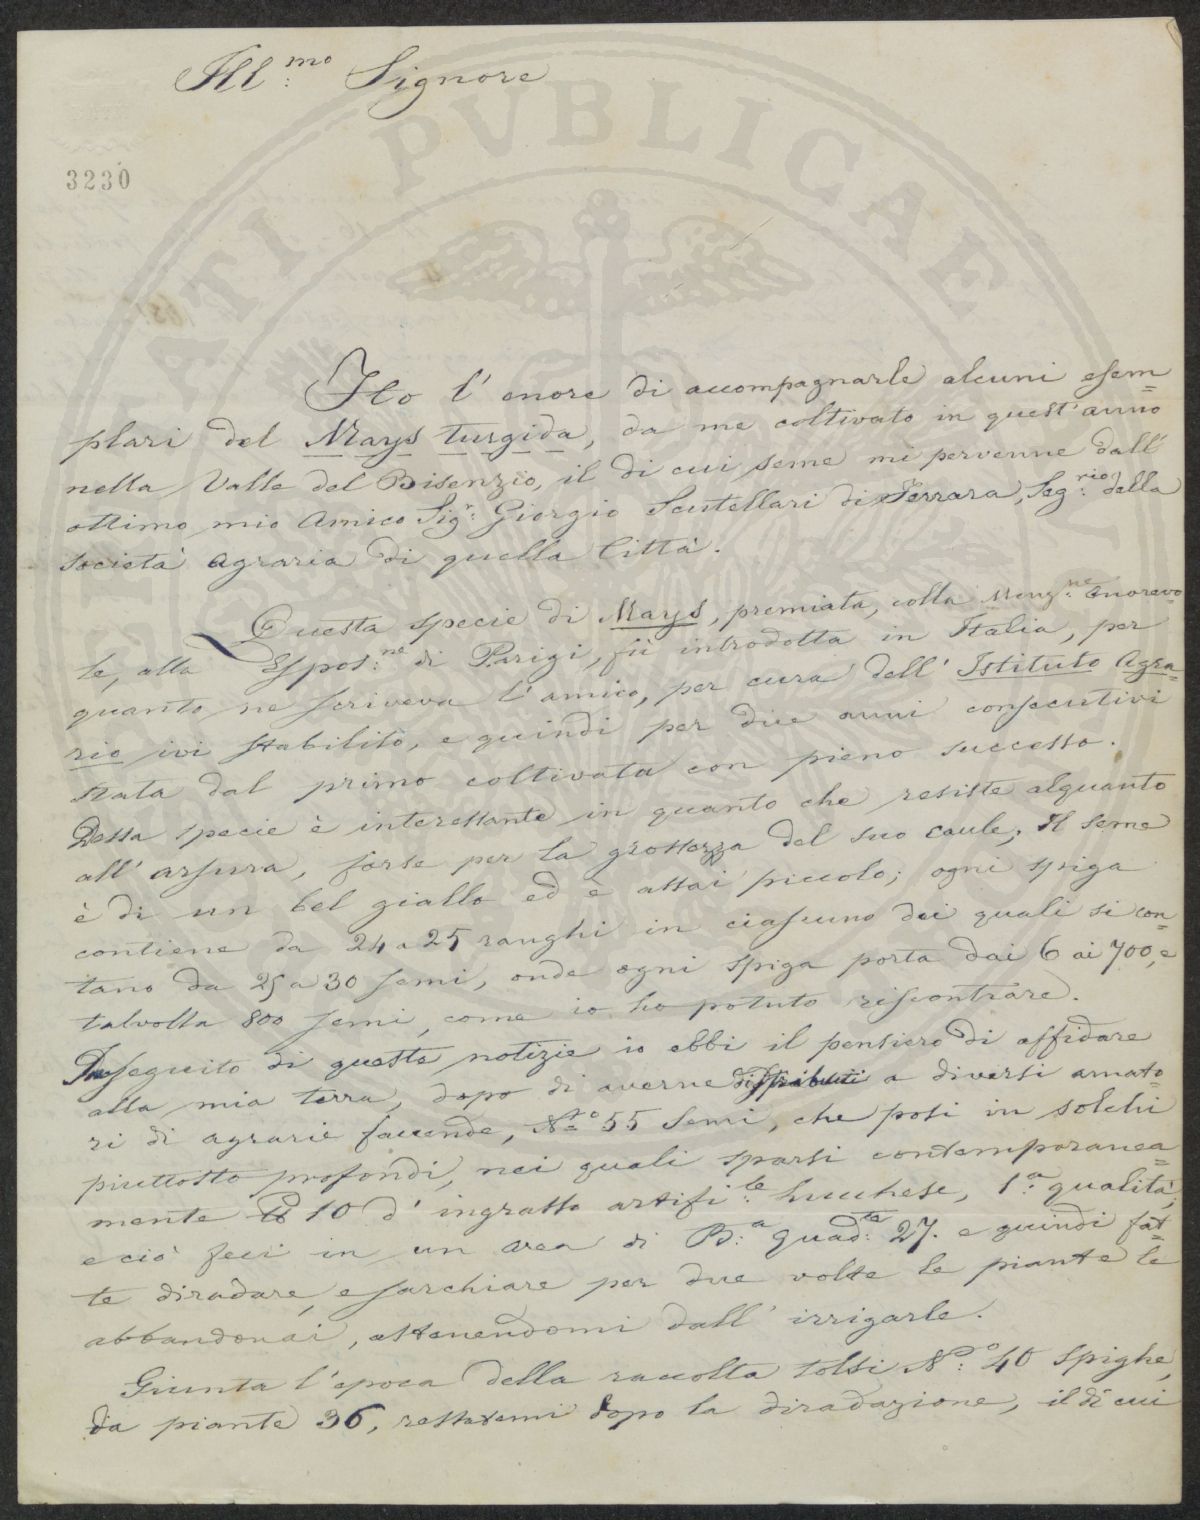 Ill.mo Signore
3230
Ho l'onore di accompagnarle alcuni esem=
plari del Mays turgida, da me coltivato in quest'anno
nella Valle del Bisenzio, il di cui seme mi pervenne dall'
ottimo mio Amico Sig.r Giorgio Scutellari di Ferrara, Seg.rio della
società Agraria di quella Città.
Questa specie di Mays, premiata, colla Menz.ne Onorevo=
le, alla Espos.ne di Parigi, fù introdotta in Italia, per
quanto ne scriveva l'amico, per cura dell'Istituto Agra=
rio ivi stabilito, e quindi per due anni consecutivi
stata dal primo coltivata con pieno successo.
Dessa specie è interessante in quanto che resiste alquanto
all'arsura, forse per la grossezza del suo caule; Il seme
è di un bel giallo ed è assai piccolo; ogni spiga
contiene da 24 a 25 ranghi in ciascuno dei quali si con=
tano da 25 a 30 semi, onde ogni spiga porta dai 6 ai 700, e
talvolta 800 semi, come io ho potuto riscontrare.
In seguito di queste notizie io ebbi il pensiero di affidare
alla mia terra, dopo di averne distribuiti a diversi amato=
ri di agrarie faccende, N.ro 55 Semi, che posi in solchi
piuttosto profondi, nei quali sparsi contemporanea=
mente ℔ 10 d'ingrasso artifi.le Lucchese, 1.a qualità;
e ciò feci in un area di B.a quad.te 27. e quindi fat=
te diradare, e sarchiare per due volte le piante le
abbandonai, astenendomi dall'irrigarle.
Giunta l'epoca della raccolta tolsi N.o 40 spighe,
da piante 36, restatemi dopo la diradazione, il di cui
PVBLICAE